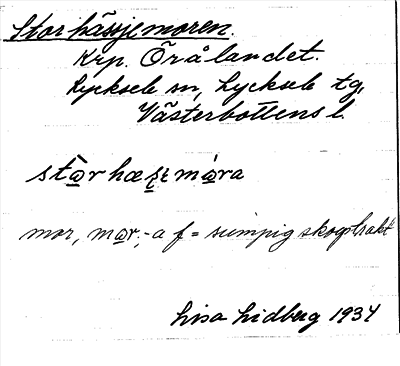 Storhässjemoren.
Krp. Örålandet.
Lycksele sn, Lycksele tg,
Västerbottens l.
mor, -a f = sumpig skogstrakt
Lisa Lidberg 1934